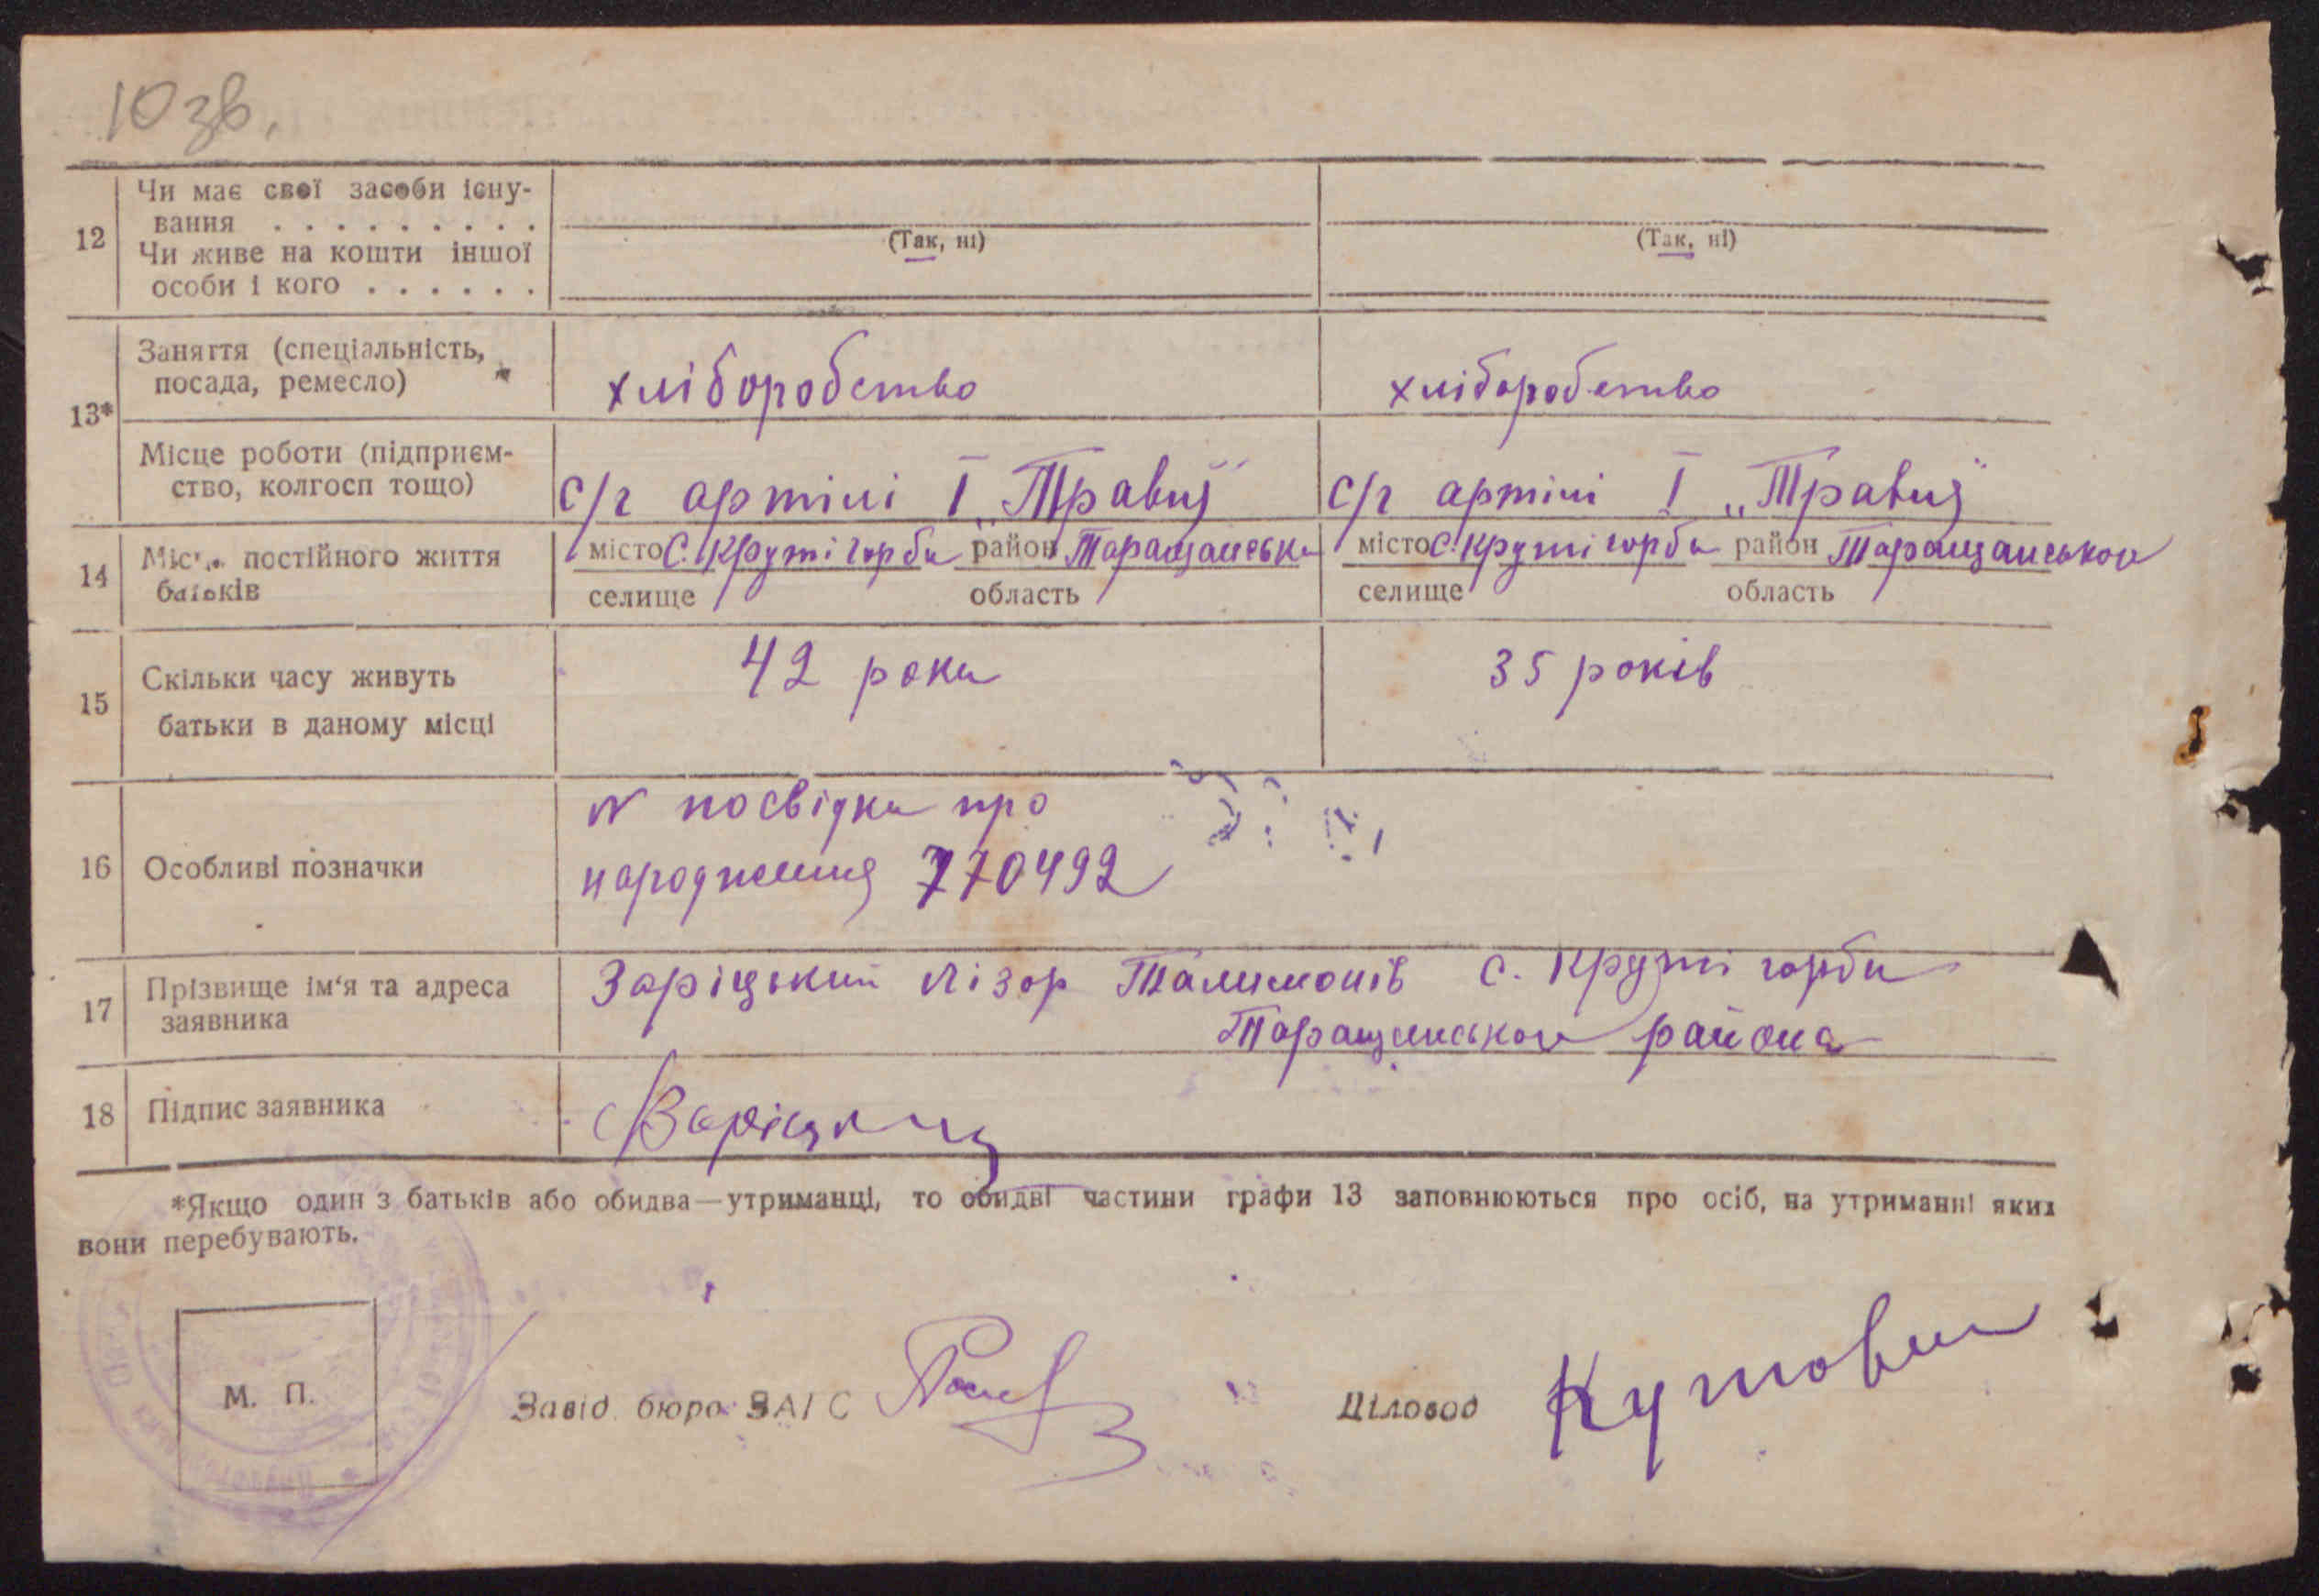 10 зв.
12
Чи має свої засоби існу-
вання . . . . . . . . .
(Так, ні)
(Так, ні)
Чи живе на кошти іншої
особи і кого . . . . . .
13*
Заняття (спеціальність,
посада, ремесло)
хліборобство
хліборобство
Місце роботи (підприєм-
ство, колгосп тощо)
с/г артілі I „Травня"
с/г артілі I „Травня"
14
Місце постійного життя
батьків
місто с. Круті горби район Таращанськ
селище область
місто с. Круті горби район Таращансько
селище область
15
Скільки часу живуть
батьки в даному місці
42 роки
35 років
16
Особливі позначки
N посвідки про
народження 770492
17
Прізвище ім'я та адреса
заявника
Заріцький Лізор Талимонів с. Круті горби
Таращанського района
18
Підпис заявника
Заріцький
*Якщо один з батьків або обидва—утриманці, то обидві частини графи 13 заповнюються про осіб, на утриманні яких
вони перебувають.
М. П.
Завід. бюро ЗАГС
Діловод
Кутовий